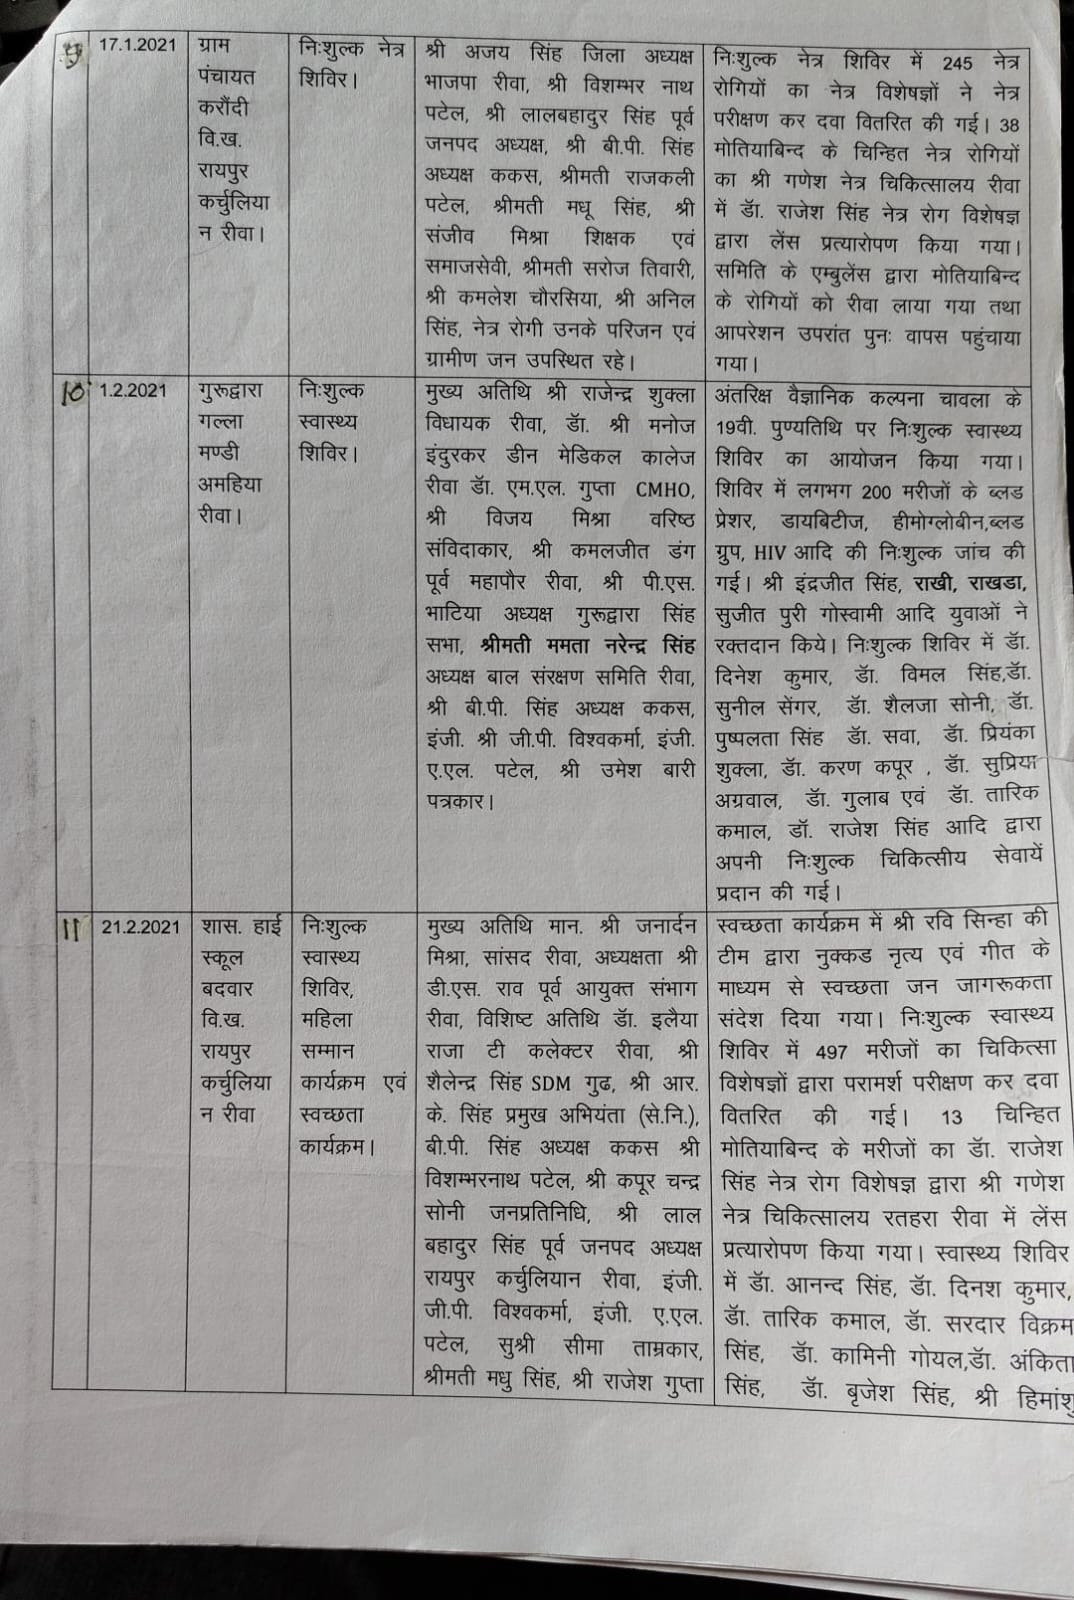 9
17.1.2021
ग्राम
पंचायत
करौंदी
वि.ख.
रायपुर
कर्चुलिया
न रीवा।
निःशुल्क नेत्र
शिविर।
श्री अजय सिंह जिला अध्यक्ष
भाजपा रीवा, श्री विशम्भर नाथ
पटेल, श्री लालबहादुर सिंह पूर्व
जनपद अध्यक्ष, श्री बी.पी. सिंह
अध्यक्ष ककस, श्रीमती राजकली
पटेल, श्रीमती मधू सिंह, श्री
संजीव मिश्रा शिक्षक एवं
समाजसेवी, श्रीमती सरोज तिवारी,
श्री कमलेश चौरसिया, श्री अनिल
सिंह, नेत्र रोगी उनके परिजन एवं
ग्रामीण जन उपस्थित रहे।
निःशुल्क नेत्र शिविर में 245 नेत्र
रोगियों का नेत्र विशेषज्ञों ने नेत्र
परीक्षण कर दवा वितरित की गई। 38
मोतियाबिन्द के चिन्हित नेत्र रोगियों
का श्री गणेश नेत्र चिकित्सालय रीवा
में डॅा. राजेश सिंह नेत्र रोग विशेषज्ञ
द्वारा लेंस प्रत्यारोपण किया गया।
समिति के एम्बुलेंस द्वारा मोतियाबिन्द
के रोगियों को रीवा लाया गया तथा
आपरेशन उपरांत पुनः वापस पहुंचाया
गया।
10
1.2.2021
गुरूद्वारा
गल्ला
मण्डी
अमहिया
रीवा।
निःशुल्क
स्वास्थ्य
शिविर।
मुख्य अतिथि श्री राजेन्द्र शुक्ला
विधायक रीवा, डॅा. श्री मनोज
इंदुरकर डीन मेडिकल कालेज
रीवा डॅा. एम.एल. गुप्ता CMHO,
श्री विजय मिश्रा वरिष्ठ
संविदाकार, श्री कमलजीत डंग
पूर्व महापौर रीवा, श्री पी.एस.
भाटिया अध्यक्ष गुरूद्वारा सिंह
सभा, श्रीमती ममता नरेन्द्र सिंह
अध्यक्ष बाल संरक्षण समिति रीवा,
श्री बी.पी. सिंह अध्यक्ष ककस,
इंजी. श्री जी.पी. विश्वकर्मा, इंजी.
ए.एल. पटेल, श्री उमेश बारी
पत्रकार।
अंतरिक्ष वैज्ञानिक कल्पना चावला के
19वी. पुण्यतिथि पर निःशुल्क स्वास्थ्य
शिविर का आयोजन किया गया।
शिविर में लगभग 200 मरीजों के ब्लड
प्रेशर, डायबिटीज, हीमोग्लोबीन,ब्लड
ग्रुप, HIV आदि की निःशुल्क जांच की
गई। श्री इंद्रजीत सिंह, राखी, राखडा,
सुजीत पुरी गोस्वामी आदि युवाओं ने
रक्तदान किये। निःशुल्क शिविर में डॅा.
दिनेश कुमार, डॅा. विमल सिंह,डॅा.
सुनील सेंगर, डॅा. शैलजा सोनी, डॅा.
पुष्पलता सिंह डॅा. सवा, डॅा. प्रियंका
शुक्ला, डॅा. करण कपूर , डॅा. सुप्रिया
अग्रवाल, डॅा. गुलाब एवं डॅा. तारिक
कमाल, डॉ. राजेश सिंह आदि द्वारा
अपनी निःशुल्क चिकित्सीय सेवायें
प्रदान की गई।
11
21.2.2021
शास. हाई
स्कूल
बदवार
वि.ख.
रायपुर
कर्चुलिया
न रीवा
निःशुल्क
स्वास्थ्य
शिविर,
महिला
सम्मान
कार्यक्रम एवं
स्वच्छता
कार्यक्रम।
मुख्य अतिथि मान. श्री जनार्दन
मिश्रा, सांसद रीवा, अध्यक्षता श्री
डी.एस. राव पूर्व आयुक्त संभाग
रीवा, विशिष्ट अतिथि डॅा. इलैया
राजा टी कलेक्टर रीवा, श्री
शैलेन्द्र सिंह SDM गुढ, श्री आर.
के. सिंह प्रमुख अभियंता (से.नि.),
बी.पी. सिंह अध्यक्ष ककस श्री
विशम्भरनाथ पटेल, श्री कपूर चन्द्र
सोनी जनप्रतिनिधि, श्री लाल
बहादुर सिंह पूर्व जनपद अध्यक्ष
रायपुर कर्चुलियान रीवा, इंजी.
जी.पी. विश्वकर्मा, इंजी. ए.एल.
पटेल, सुश्री सीमा ताम्रकार,
श्रीमती मधु सिंह, श्री राजेश गुप्ता
स्वच्छता कार्यक्रम में श्री रवि सिन्हा की
टीम द्वारा नुक्कड नृत्य एवं गीत के
माध्यम से स्वच्छता जन जागरूकता
संदेश दिया गया। निःशुल्क स्वास्थ्य
शिविर में 497 मरीजों का चिकित्सा
विशेषज्ञों द्वारा परामर्श परीक्षण कर दवा
वितरित की गई। 13 चिन्हित
मोतियाबिन्द के मरीजों का डॅा. राजेश
सिंह नेत्र रोग विशेषज्ञ द्वारा श्री गणेश
नेत्र चिकित्सालय रतहरा रीवा में लेंस
प्रत्यारोपण किया गया। स्वास्थ्य शिविर
में डॅा. आनन्द सिंह, डॅा. दिनश कुमार,
डॅा. तारिक कमाल, डॅा. सरदार विक्रम
सिंह, डॅा. कामिनी गोयल,डॅा. अंकिता
सिंह, डॅा. बृजेश सिंह, श्री हिमांशु